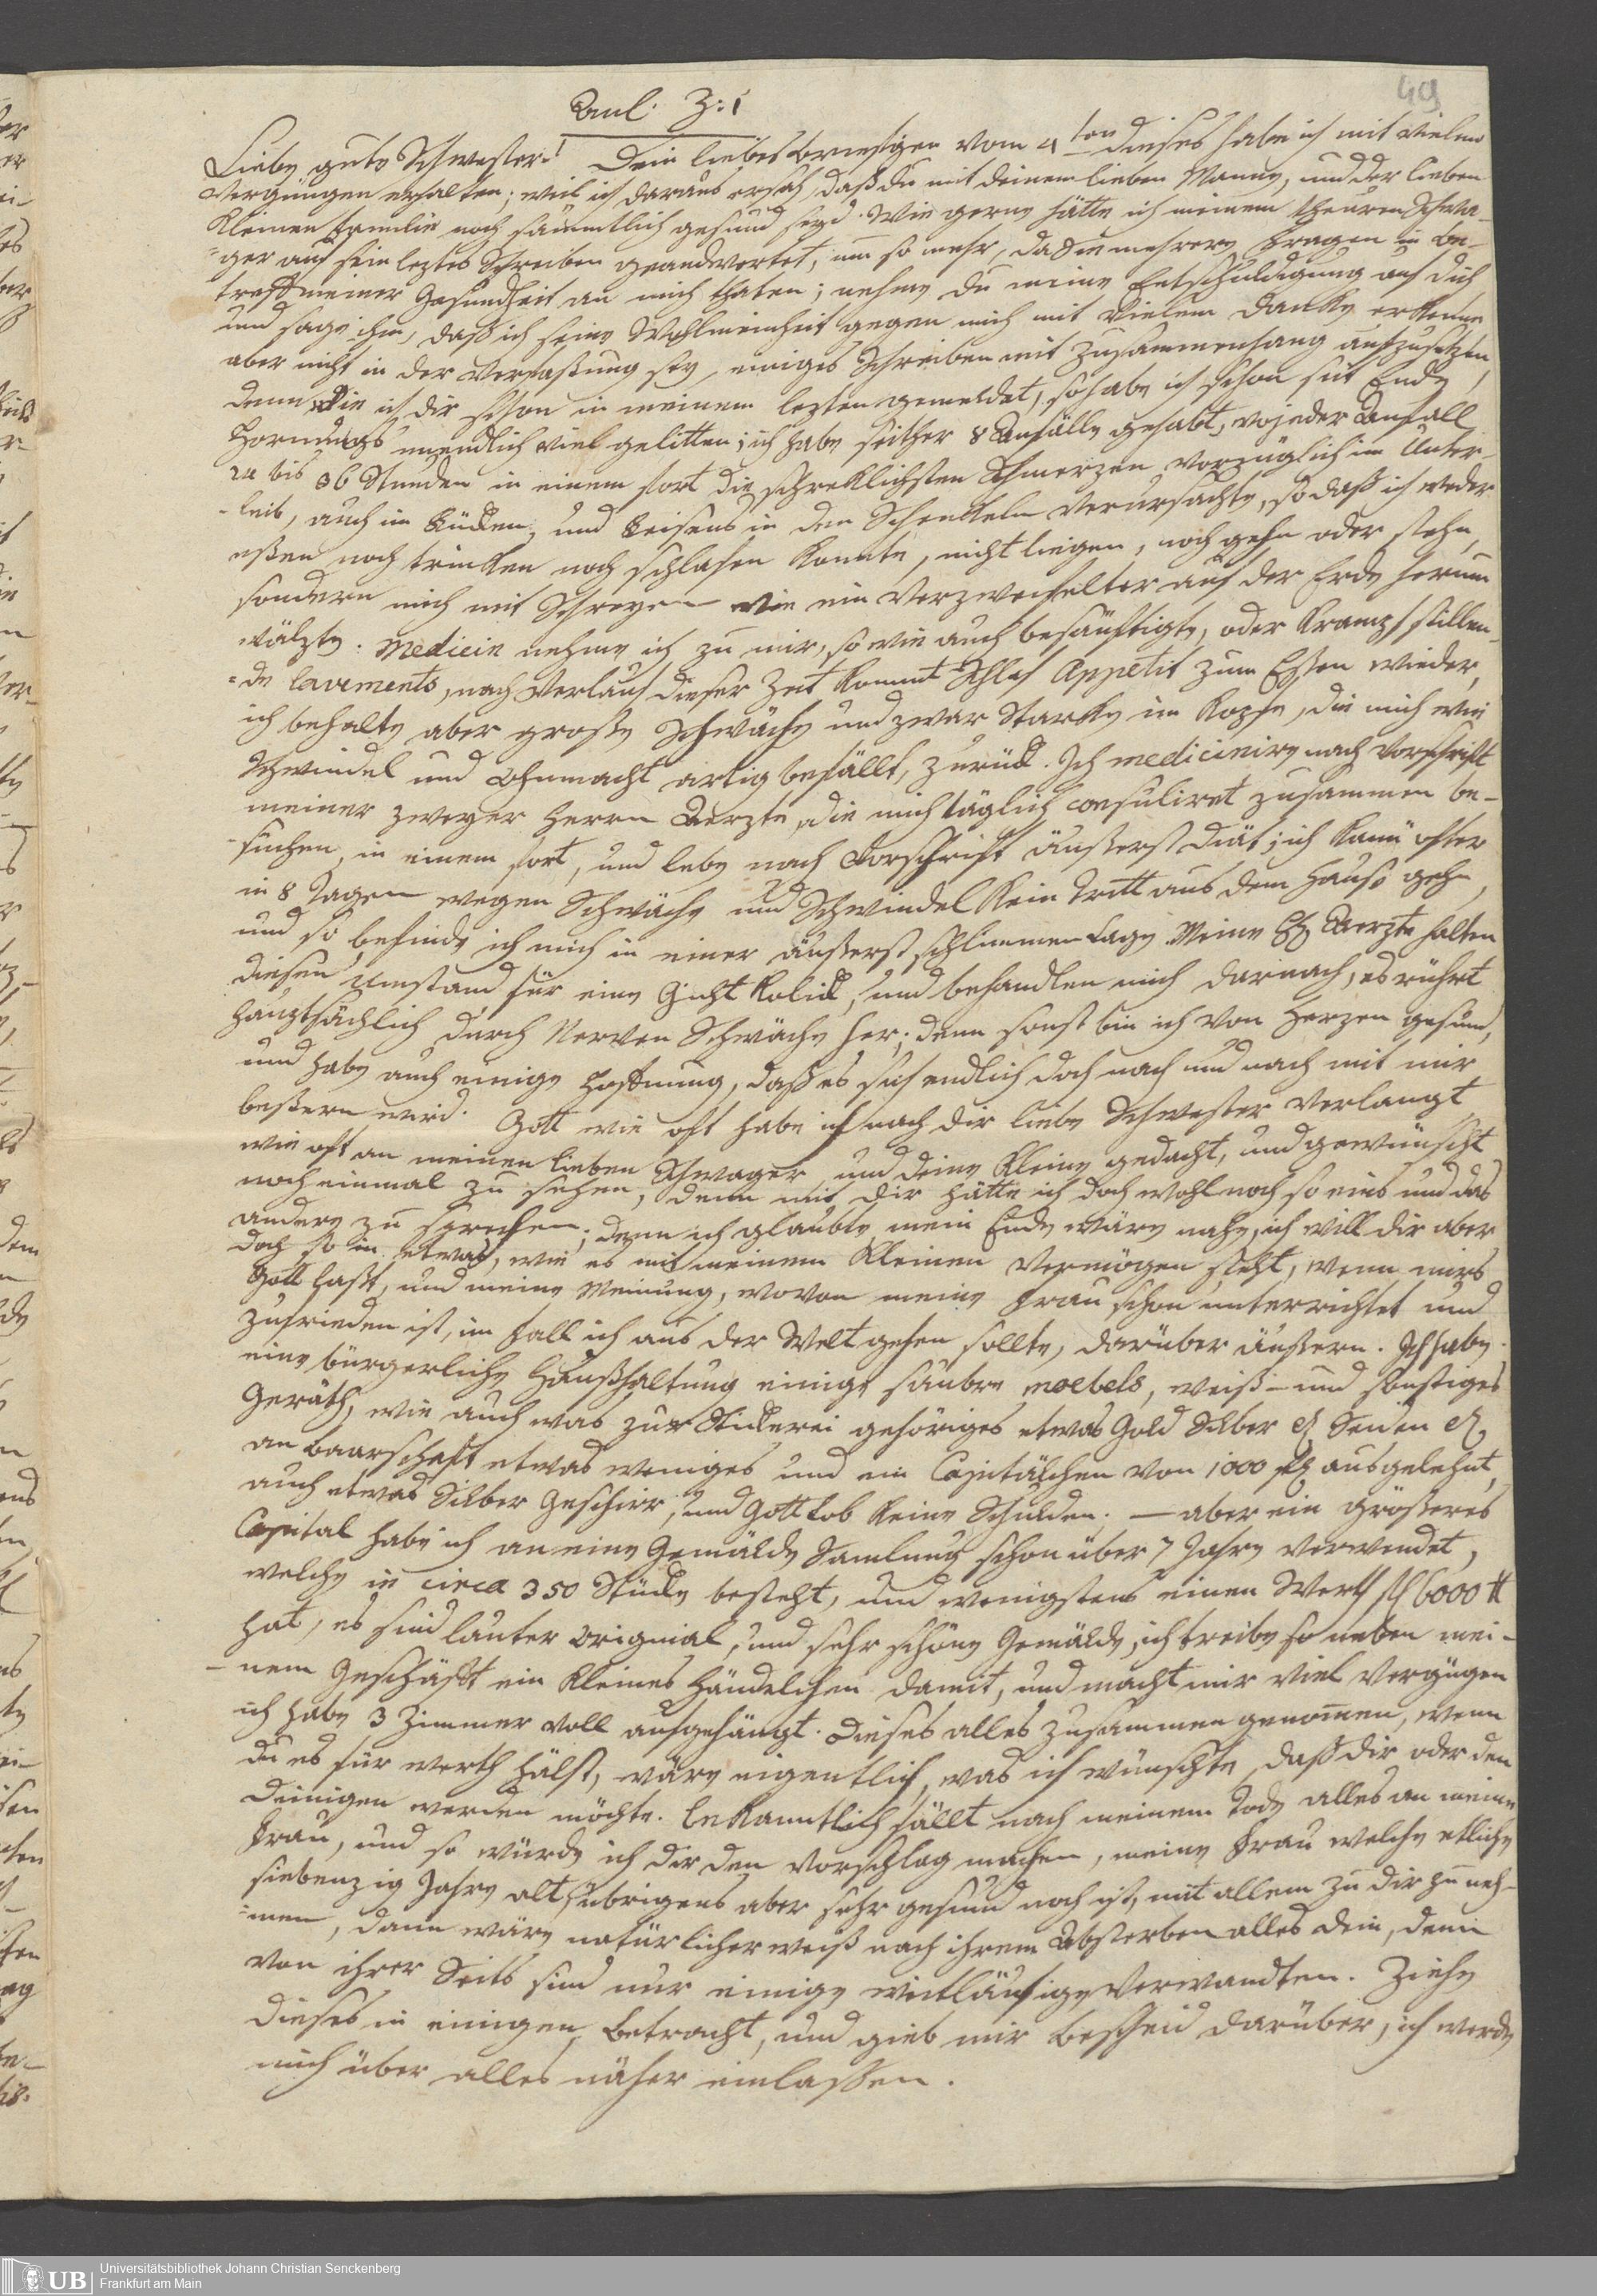 49
Anl. Z: 1
Liebe gute Schwester! Dein liebes Briefchen vom 4ten dieses habe ich mit vielem
Vergnügen erhalten; weil ich daraus ersah, daß du mit deinem lieben Manne, und der lieben
Kleinen Familie noch sämmtlich gesund seyd. Wie gerne hätte ich meinem theuren Schwa-
ger auf sein leztes Schreiben geandwortet, um so mehr, da Sie mehrere Fragen in Be-
treff meiner Gesundheit an mich thaten; nehme du meine Entschuldigung auf dich
und sage ihm, daß ich seine Wohlmeinheit gegen mich mit vielem Danke erkenne
aber nicht in der Verfaßung sey, einiges Schreiben mit Zusammenhang aufzusetzen,
denn wie ich dir schon in meinem lezten gemeldet, so habe ich schon seit Ende
Hornungs unendlich viel gelitten; ich habe seither 8 Anfälle gehabt, wo jeder Anfall
24 bis 36 Stunden in einem fort die schreklichsten Schmerzen vorzüglich im Unter-
leib, auch im Rücken, und Reisens in den Schenkeln verursachte, so daß ich weder
eßen noch trinken noch schlafen konnte, nicht liegen, noch gehn oder stehn,
sondern mich mit Schreyen wie ein Verzweifelter auf der Erde herum
wälzte. Medicin nehme ich zu mir, so wie auch besänftigte, oder Krampf stillen-
de Lavements, nach Verlauf dieser Zeit kommt Schlaf Appetit zum Essen wieder,
ich behalte aber große Schwäche und zwar starke im Kopfe, die mich wie
Schwindel und Ohnmacht artig befällt, zurück. Ich medicinire nach Vorschrift
meiner zweyer Herrn Aerzte, die mich täglich consulirat zusammen be-
suchen, in einem fort, und lebe nach Vorschrift äußerst Diät; ich kann öfter
in 8 Tagen wegen Schwäche und Schwindel kein Tritt aus dem Hause gehn,
und so befinde ich mich in einer äußerst schlimmen Lage. Meine HH. Aerzte halten
diesen Umstand für eine Gicht Kolick, und behandlen mich darnach, es rührt
hauptsächlich durch Nerven Schwäche her; denn sonst bin ich von Herzen gesund,
und habe auch einige Hoffnung, daß es sich endlich doch nach und nach mit mir
beßern wird. Gott wie oft habe ich nach dir liebe Schwester verlangt
wie oft an meinen lieben Schwager und deine Kleine gedacht, und gewünscht
noch einmal zu sehen, denn mit dir hätte ich doch wohl noch so eins und das
andere zu sprechen; denn ich glaubte mein Ende wäre nahe, ich will dir aber
doch so in etwas, wie es mit meinem kleinen Vermögen steht, wenn mirs
Gott laßt, und meine Meinung, wovon meine Frau schon unterrichtet und
zufrieden ist, im Fall ich aus der Welt gehen sollte, darüber äußern. Ich habe
eine bürgerliche Haußhaltung einige saubre moebels, weiß- und sonstiges
Geräth, wie auch was zur Stickerei gehöriges etwas Gold Silber & Seiden &
an Baarschaft etwas weniges und ein Capitälchen von 1000 fl ausgelehnt,
auch etwas Silber Geschirr, und Gott Lob keine Schulden. — aber ein größeres
Capital habe ich an eine Gemälde Samlung schon über 7 Jahre verwendet,
welche in circa 350 Stücke besteht, und wenigstens einen Werth fl 6000 #
hat, es sind lauter Original, und sehr schöne Gemälde, ich treibe so neben mei-
nem Geschäft ein kleines Händelchen damit, und macht mir viel Vergügen
ich habe 3 Zimmer voll aufgehängt. Dieses alles zusammen genomen, wenn
du es für werth hälst, wäre eigentlich, was ich wünschte, daß dir oder den
deinigen werden möchte. Bekanntlich fällt nach meinem Tode alles an meine
Frau, und so würde ich dir den Vorschlag machen, meine Frau welche etliche
siebenzig Jahre alt, übrigens aber sehr gesund noch ist, mit allem zu dir zu neh-
men, dann wäre natürlicherweiß nach ihrem Absterben alles dein, denn
von ihrer Seits sind nur einige weitläufige Verwandten. Ziehe
dieses in einigen Betracht, und gieb mir Bescheid darüber, ich werde
mich über alles näher einlassen.
UB
Universitätsbibliothek Johann Christian Senckenberg
Frankfurt am Main